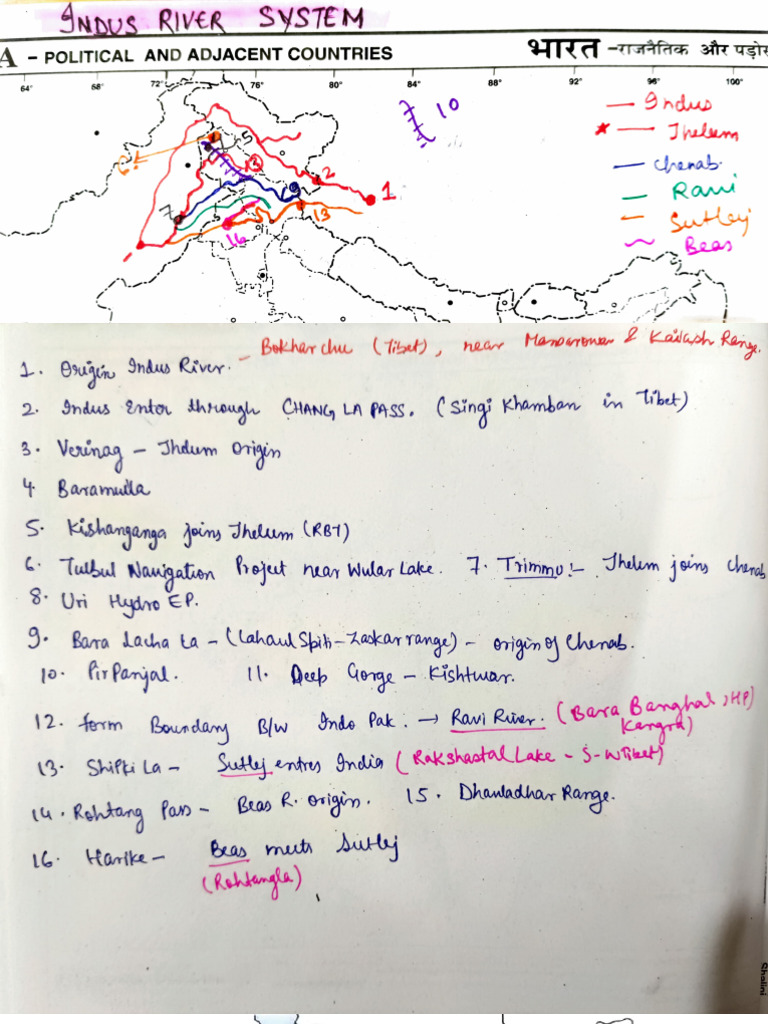 INDUS RIVER SYSTEM
A - POLITICAL AND ADJACENT COUNTRIES
भारत -राजनैतिक और पड़ोस
64° 68° 72° 76° 80° 84° 88° 92° 96° 100°
10
Indus
* Jhelum
Chenab
Ravi
Sutlej
Beas
6 5 3 2 1
7 9 13
16
1. Origin Indus River. - Bokhar chu (Tibet), near Mansarowar & Kailash Range.
2. Indus Enter through CHANG LA PASS. (Singi Khamban in Tibet)
3. Verinag - Jhelum Origin
4. Baramulla
5. Kishanganga joins Jhelum (RBT)
6. Tulbul Navigation Project near Wular Lake. 7. Trimmu :- Jhelum joins Chenab
8. Uri Hydro EP.
9. Bara Lacha La - (Lahaul Spiti - Zaskar range) - origin of Chenab.
10. Pir Panjal. 11. Deep Gorge - Kishtwar.
12. form Boundary B/W Indo Pak. → Ravi River. (Bara Banghal, HP) Kangra)
13. Shipki La - Sutlej entres India (Rakshastal Lake - S-W Tibet)
14. Rohtang Pass - Beas R. origin. 15. Dhauladhar Range.
16. Harike - Beas meets Sutlej
(Rohtangla)
Shalini